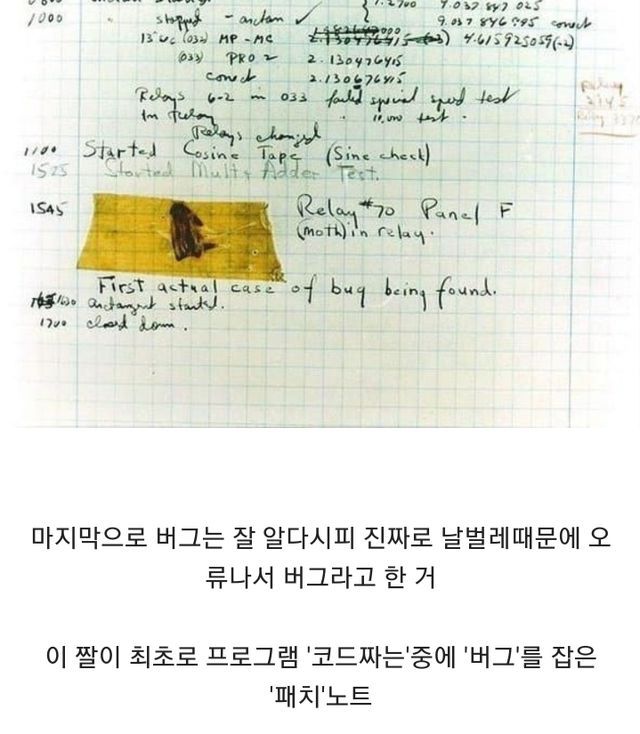 1.2700 9.037 847 025
1000 " stopped - arctan ✓ 9.037 846 995 correct
13"uc (032) MP - MC 2.130476415 (-3) 4.615925059(-2)
(033) PRO 2 2.130476415
correct 2.130676415
Relays 6-2 in 033 failed special speed test
In Relay " 11,000 test.
Relays changed
1100 Started Cosine Tape (Sine check)
1525 Started Mult + Adder Test.
1545 Relay #70 Panel F
(moth) in relay.
First actual case of bug being found.
1630 arctangent started.
1700 closed down.
마지막으로 버그는 잘 알다시피 진짜로 날벌레때문에 오
류나서 버그라고 한 거
이 짤이 최초로 프로그램 '코드짜는'중에 '버그'를 잡은
'패치'노트